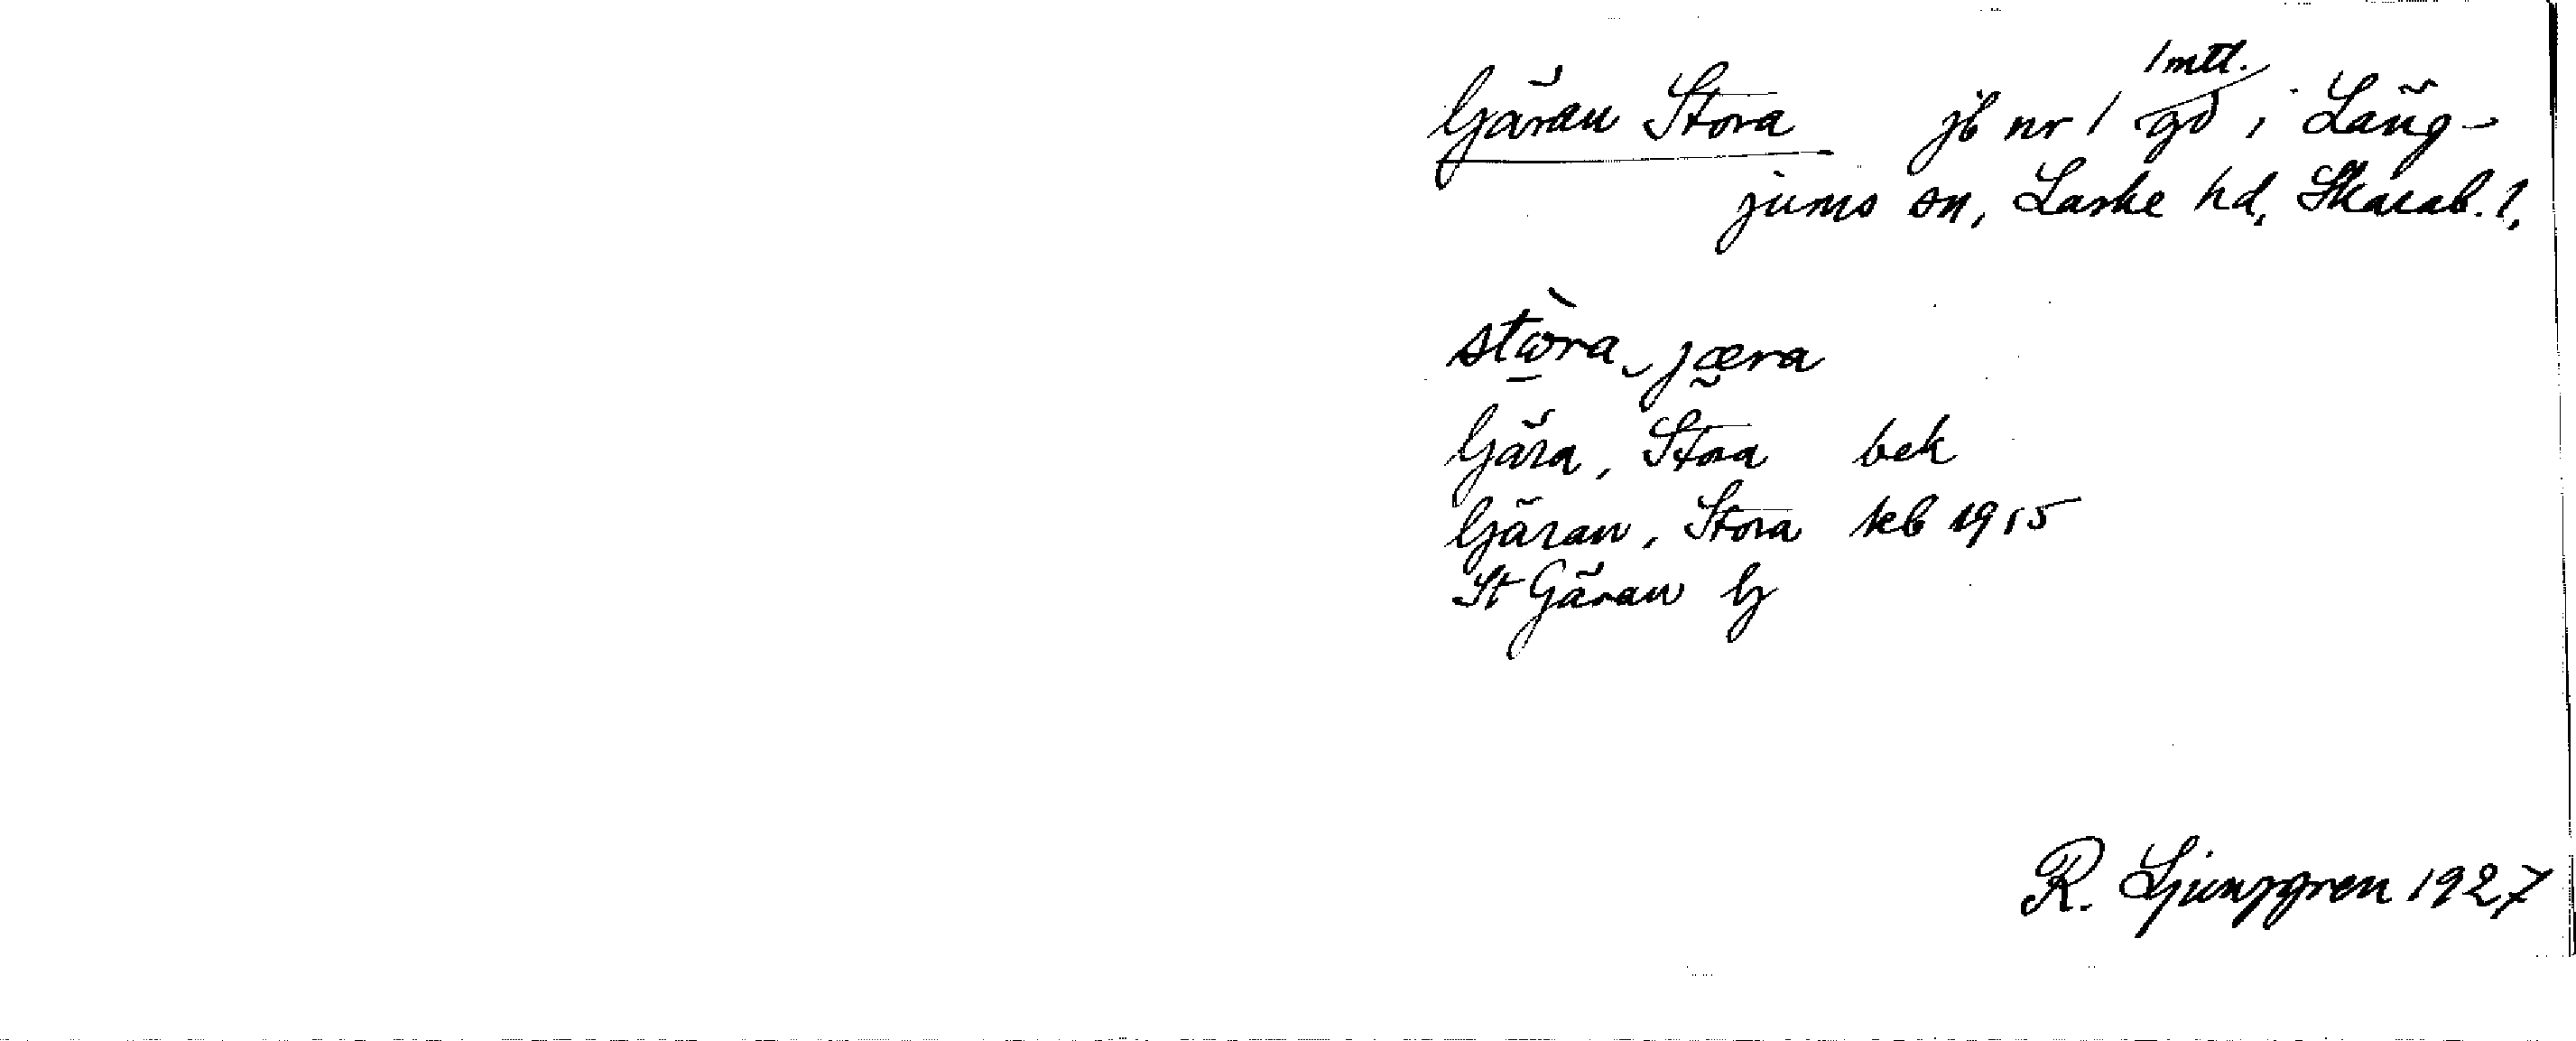 1 mtl.
Gäran Stora jb nr 1 gd i Läng-
jums sn, Laske hd, Skarab. l.
stωra jæra
Gära, Stora bek
Gäran, Stora kb 1915
St Gäran G
R. Ljunggren 1927